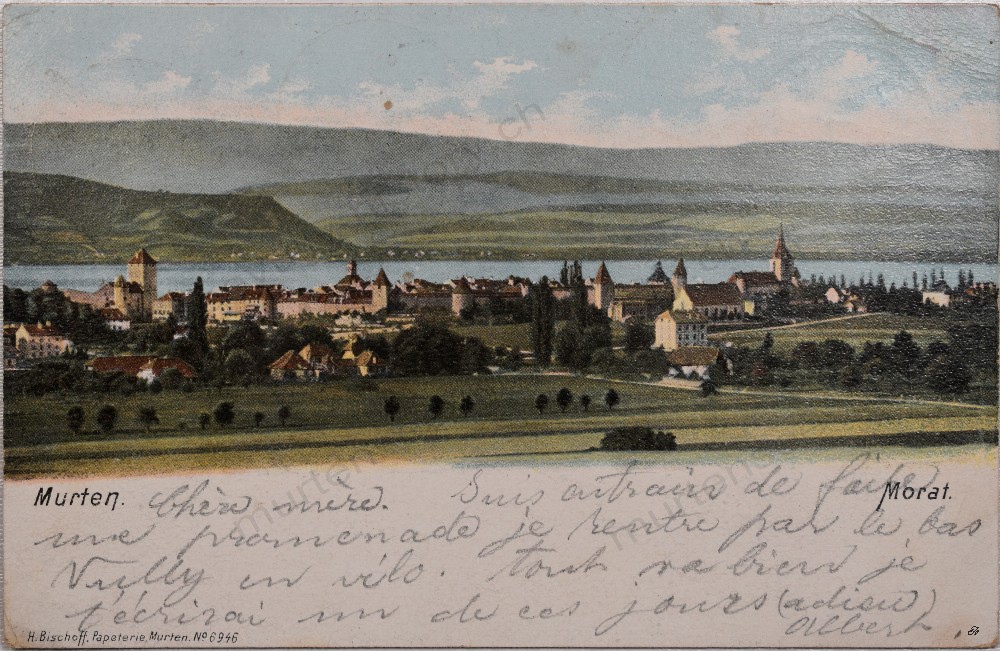 Murten.
Morat.
Chère mère. Suis entrain de faire
une promenade je rentre par le bas
Vully en vélo. tout va bien je
t'écrirai un de ces jours (adieu)
Albert.
H. Bischoff, Papeterie, Murten. Nº 6946
murten.ch
murten.ch
murten.ch